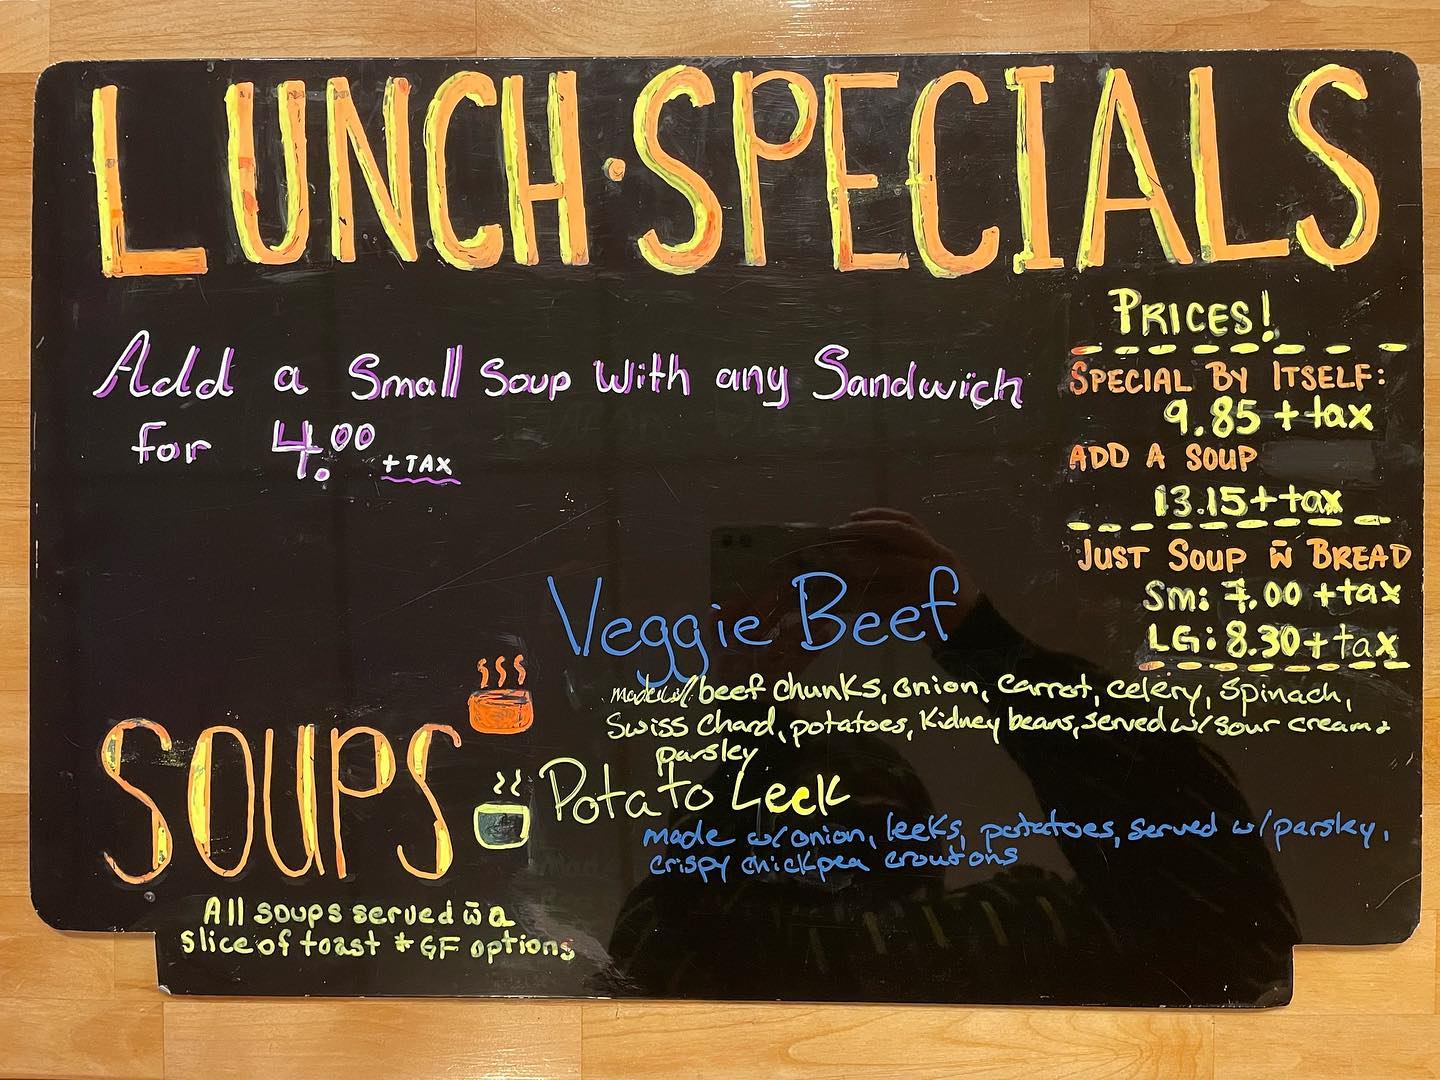 LUNCH · SPECIALS
Add a Small Soup with any Sandwich
for 4.00 + TAX
PRICES!
SPECIAL BY ITSELF:
9.85 + tax
ADD A SOUP
13.15 + tax
JUST SOUP w̄ BREAD
Sm: 7.00 + tax
LG: 8.30 + tax
Veggie Beef
made w/ beef chunks, onion, carrot, celery, spinach,
Swiss Chard, potatoes, Kidney beans, served w/ sour cream +
parsley
SOUPS
Potato Leek
made w/ onion, leeks, potatoes, served w/ parsley,
crispy chickpea croutons
All soups served w̄ a
slice of toast * GF options